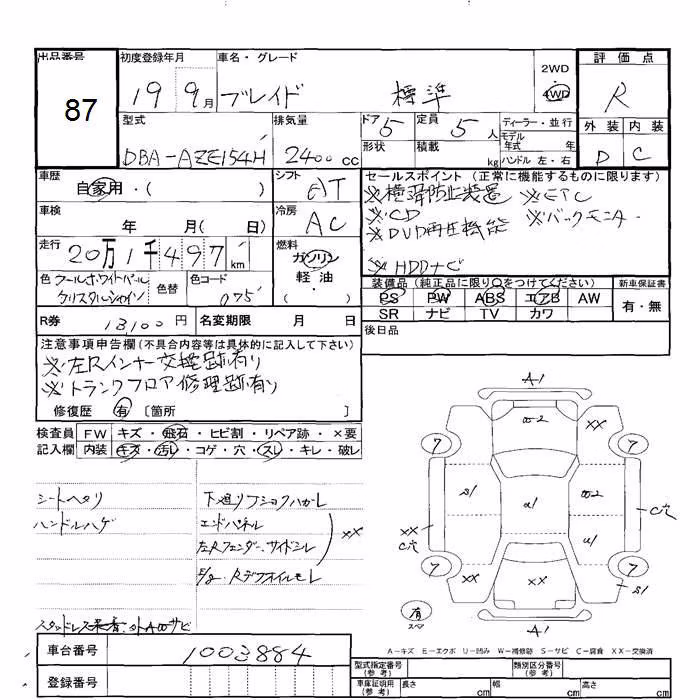 出品番号 初度登録年月 車名・グレード 2WD 評価点
87 19 9月 ブレイド 標準 4WD R
型式 排気量 ドア 5 定員 5人 ディーラー・並行 外装 内装
モデル年式 年
DBA-AZE154H 2400cc 形状 積載 kg ハンドル 左・右 D C
車歴 シフト セールスポイント(正常に機能するものに限ります)
自家用・( ) AT ※横滑防止装置 ※ETC
車検 冷房 ※CD ※バックモニター
年 月( 日) AC ※DVD再生機能
走行 燃料 ※HDDナビ
20万1千497 km ガソリン
軽油
・( )
色 クールホワイトパール 色替 色コード 装備品(純正品に限り○をつけてください) 新車保証書
クリスタルシャイン 075 PS PW ABS エアB AW 有・無
SR ナビ TV カワ
R券 13,100円 名変期限 月 日 後日品
注意事項申告欄(不具合内容等は具体的に記入して下さい)
※左Rインナー交換跡有り
※トランクフロア修理跡有り
修復歴 有 〔箇所 〕
検査員 FW キズ・飛石・ヒビ割・リペア跡・×要
記入欄 内装 キズ・汚レ・コゲ・穴・スレ・キレ・破レ
シートヘタリ 下廻りフショクハガレ
ハンドルハゲ エンドパネル
左Rフェンダー、サイドシル XX
E/g・Rデフオイルモレ
A1
U-2 XX
7 7
S1 U1 U-2
XX C穴 U1 C穴
7 7
XX XX S1
有 スペア
A1
A-キズ E-エクボ U-凹み W-補修跡 S-サビ C-腐食 XX-交換済
車台番号 1003884
登録番号
型式指定番号(参考) 類別区分番号(参考)
車庫証明用(参考) 長さ cm 幅 cm 高さ cm